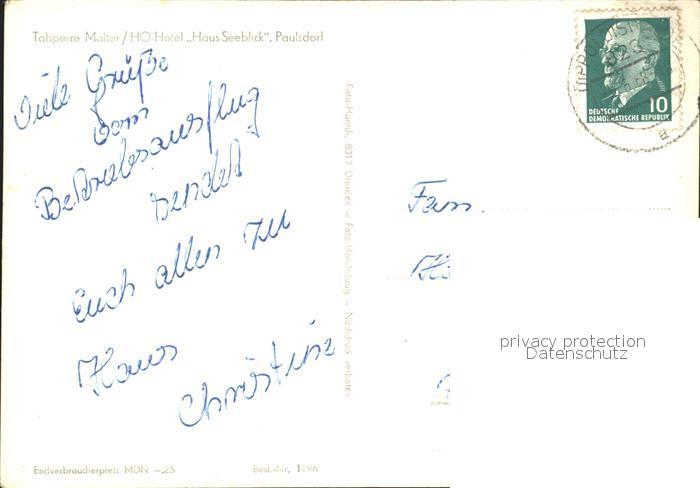 Talsperre Malter / HO-Hotel „Haus Seeblick", Paulsdorf
Viele Grüße
vom
Betriebsausflug
sendet
Euch allen zu
Haus
Christine
Foto-Handk. 8017 Dresden — Foto-Handabzug — Nachdruck verboten
Endverbraucherpreis MDN –,25
Best.-Nr. 1196
DEUTSCHE
DEMOKRATISCHE REPUBLIK
10
Fam.
privacy protection
Datenschutz